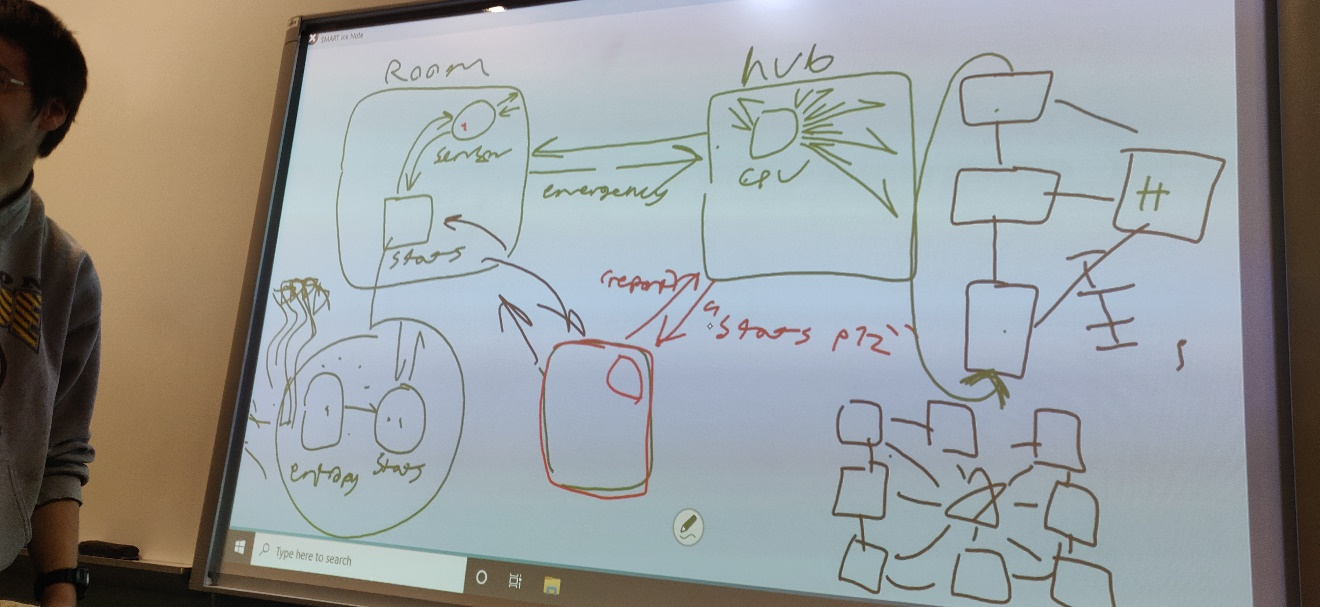 SMART Ink Note
Room
hub
sensor
CPU
emergency
H
stats
(report)
"Stats plz"
entropy
Stats
Type here to search